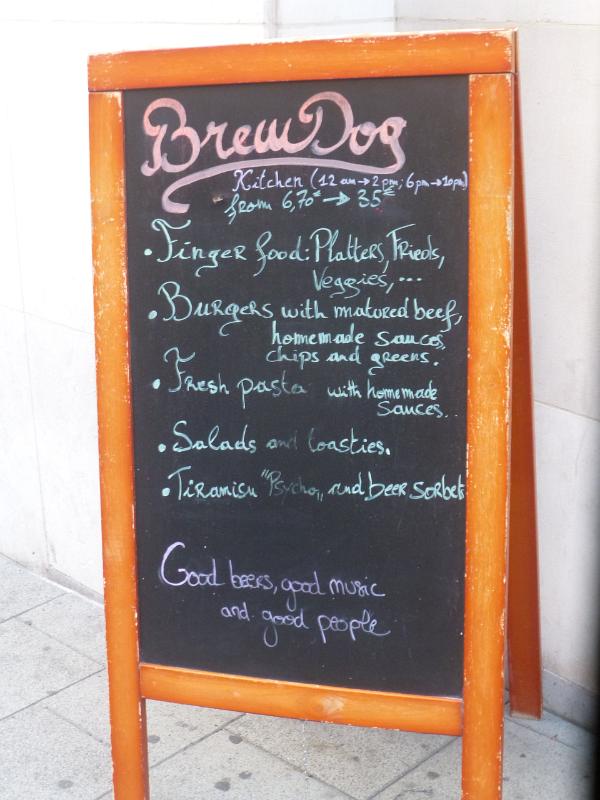 BrewDog
Kitchen (12 am→2 pm; 6pm→10pm)
from 6,70€ → 35€
• Finger food: Platters, Frieds,
Veggies, ...
• Burgers with matured beef,
homemade sauces,
chips and greens.
• Fresh pasta with homemade
sauces..
• Salads and toasties.
• Tiramisu "Psycho„ and beer sorbets
Good beers, good music
and good people